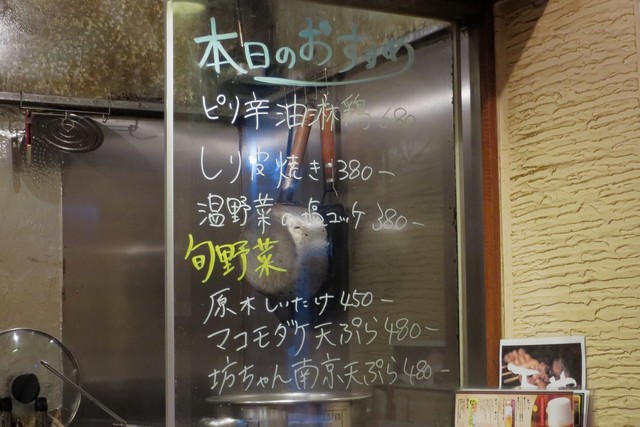 本日のおすすめ
ピリ辛油淋鶏 680
しり皮焼き 380-
温野菜の塩コッケ 380-
旬野菜
原木しいたけ 450-
マコモダケ天ぷら 480-
坊ちゃん南京天ぷら 480-